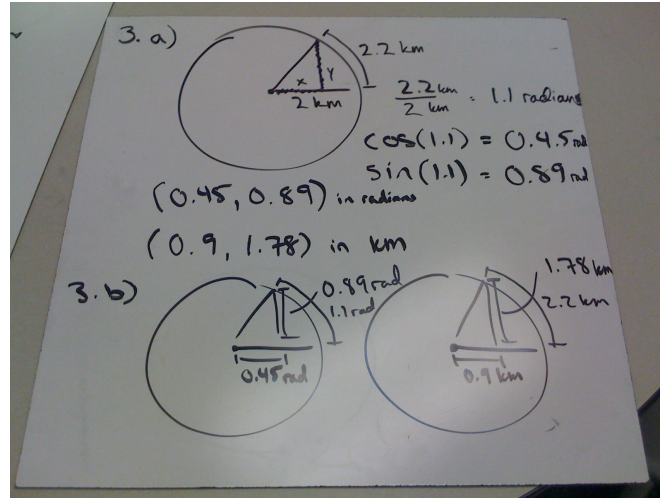 3. a)
2.2 km
x
y
2 km
2.2 km / 2 km = 1.1 radians
cos(1.1) = 0.45 rad
sin(1.1) = 0.89 rad
(0.45, 0.89) in radians
(0.9, 1.78) in km
3. b)
0.89 rad
1.1 rad
0.45 rad
1.78 km
2.2 km
0.9 km